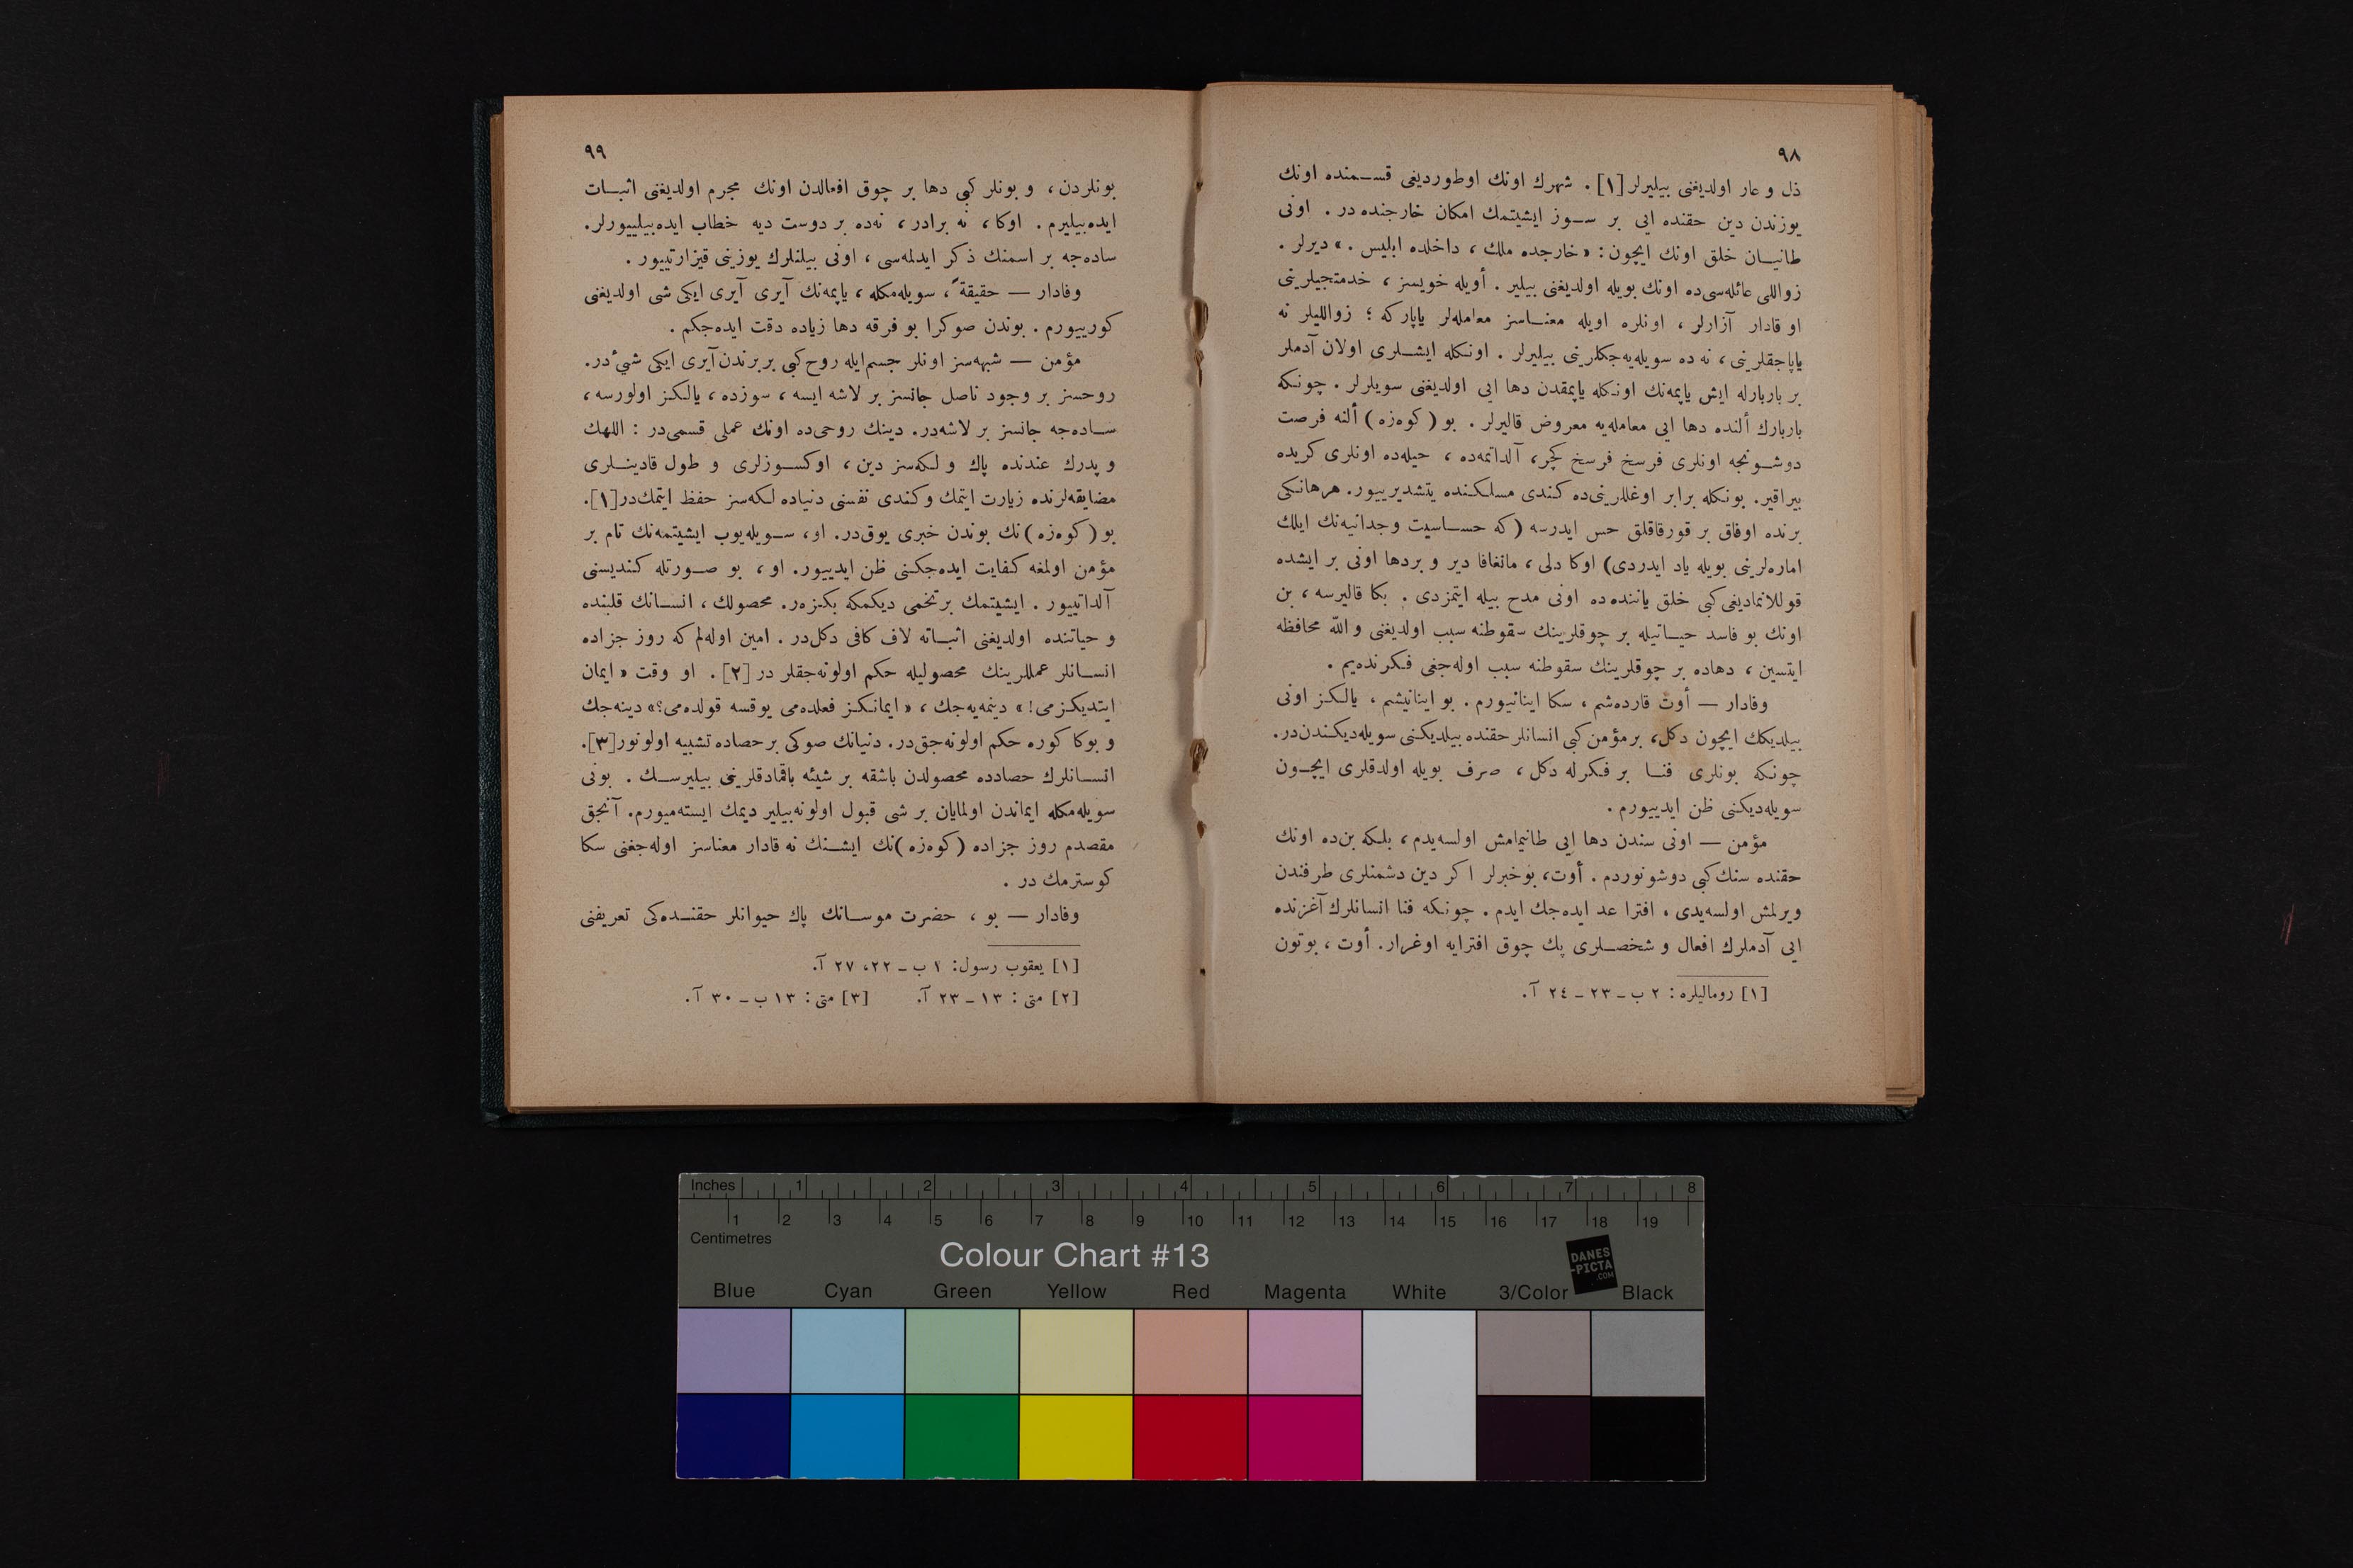 ٩٨
ذل و عار اولديغنى بيليرلر [١] . شهرك اونك اوطورديغى قسـمنده اونك
يوزندن دين حقنده ايى بر سـوز ايشيتمك امكان خارجنده در . اونى
طانيـان خلق اونك ايچون : « خارجده ملك ، داخلده ابليس . » ديرلر .
زواللى عائله‌سى‌ده اونك بويله اولديغنى بيلير . أويله خويسز ، خدمتجيلرينى
او قادار آزارلر ، اونلره اويله معنـاسز معامله‌لر ياپاركه ؛ زوالليلر نه
ياپاجقلرينى ، نه ده سويله‌يه‌جكلرينى بيليرلر . اونكله ايشـلرى اولان آدملر
بر باربارله ايش ياپمه‌نك اونكله ياپمقدن دها ايى اولديغنى سويلرلر . چونكه
باربارك ألنده دها ايى معامله‌يه معروض قاليرلر . بو ( كوه‌زه ) ألنه فرصت
دوشـونجه اونلرى فرسخ فرسخ كچر ، آلداتمه‌ده ، حيله‌ده اونلرى كريده
بيراقير . بونكله برابر اوغللرينى‌ده كندى مسلكنده يتشديرييور . هرهانكى
برنده اوفاق بر قورقاقلق حس ايدرسه ( كه حسـاسيت وجدانيه‌نك ايلك
اماره‌لرينى بويله ياد ايدردى ) اوكا دلى ، مانغافا دير و بردها اونى بر ايشده
قوللانماديغى كبى خلق ياننده ده اونى مدح بيله ايتمزدى . بكا قاليرسه ، بن
اونك بو فاسد حيـاتيله بر چوقلرينك سقوطنه سبب اولديغنى و الله محافظه
ايتسين ، دهاده بر چوقلرينك سقوطنه سبب اوله‌جغى فكرنده‌يم .
وفادار — أوت قارده‌شم ، سكا اينانيورم . بو اينانيشم ، يالكز اونى
بيلديكك ايچون دكل ، بر مؤمن كبى انسانلر حقنده بيلديكنى سويله‌ديكندن‌در .
چونكه بونلرى فنـا بر فكرله دكل ، صرف بويله اولدقلرى ايچـون
سويله‌ديكنى ظن ايدييورم .
مؤمن — اونى سندن دها ايى طانيمامش اولسه‌يدم ، بلكه بن‌ده اونك
حقنده سنك كبى دوشونوردم . أوت ، بوخبرلر اكر دين دشمنلرى طرفندن
ويرلمش اولسه‌يدى ، افترا عد ايده‌جك ايدم . چونكه فنا انسانلرك آغزنده
ايى آدملرك افعال و شخصـلرى پك چوق افترايه اوغرار . أوت ، بوتون
[١] روماليلره : ٢ ب ـ ٢٣ ـ ٢٤ آ .
٩٩
بونلردن ، و بونلر كبى دها بر چوق افعالدن اونك مجرم اولديغنى اثبـات
ايده‌بيليرم . اوكا ، نه برادر ، نه‌ده بر دوست ديه خطاب ايده‌بيلييورلر .
ساده‌جه بر اسمنك ذكر ايدلمه‌سى ، اونى بيلنلرك يوزينى قيزارتييور .
وفادار — حقيقةً ، سويله‌مكله ، ياپمه‌نك آيرى آيرى ايكى شى اولديغنى
كورييورم . بوندن صوكرا بو فرقه دها زياده دقت ايده‌جكم .
مؤمن — شبهه‌سز اونلر جسم ايله روح كبى بربرندن آيرى ايكى شىء در .
روحسز بر وجود ناصل جانسز بر لاشه ايسه ، سوزده ، يالكز اولورسه ،
سـاده‌جه جانسز بر لاشه‌در . دينك روحى‌ده اونك عملى قسمى‌در : اللهك
و پدرك عندنده پاك و لكه‌سز دين ، اوكسـوزلرى و طول قادينـلرى
مضايقه‌لرنده زيارت ايتمك و كندى نفسنى دنياده لكه‌سز حفظ ايتمك‌در [١] .
بو ( كوه‌زه ) نك بوندن خبرى يوق‌در . او ، سـويله‌يوب ايشيتمه‌نك تام بر
مؤمن اولمغه كفايت ايده‌جكنى ظن ايدييور . او ، بو صـورتله كنديسنى
آلداتييور . ايشيتمك بر تخمى ديكمكه بكزه‌ر . محصولك ، انسـانك قلبنده
و حياتنده اولديغنى اثبـاته لاف كافى دكل‌در . امين اوله‌لم كه روز جزاده
انسـانلر عمللرينك محصوليله حكم اولونه‌جقلر در [٢] . او وقت « ايمان
ايتديكزمى ! » دينمه‌يه‌جك ، « ايمانكز فعلده‌مى يوقسه قولده‌مى ؟ » دينه‌جك
و بوكا كوره حكم اولونه‌جق‌در . دنيانك صوكى بر حصاده تشبيه اولونور [٣] .
انسـانلرك حصادده محصولدن باشقه بر شيئه باقمادقلرينى بيليرسـك . بونى
سويله‌مكله ايماندن اولمايان بر شى قبول اولونه‌بيلير ديمك ايسته‌ميورم . آنجق
مقصدم روز جزاده ( كوه‌زه ) نك ايشـنك نه قادار معناسز اوله‌جغنى سكا
كوسترمك در .
وفادار — بو ، حضرت موسـانك پاك حيوانلر حقنـده‌كى تعريفنى
[١] يعقوب رسول : ١ ب ـ ٢٢ ، ٢٧ آ .
[٢] متى : ١٣ ـ ٢٣ آ . [٣] متى : ١٣ ب ـ ٣٠ آ .
Inches 1 2 3 4 5 6 7 8
1 2 3 4 5 6 7 8 9 10 11 12 13 14 15 16 17 18 19
Centimetres
Colour Chart #13
DANES
-PICTA
.COM
Blue Cyan Green Yellow Red Magenta White 3/Color Black